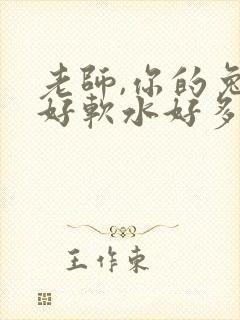 老師,你的兔
好軟水好多
王作東